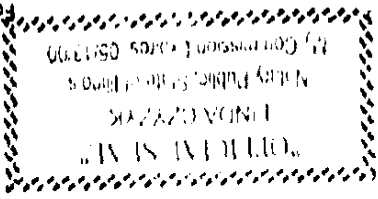 "OFFICIAL SEAL"
LINDA CZYZYK
Notary Public, State of Illinois
My Commission Expires 05/13/00